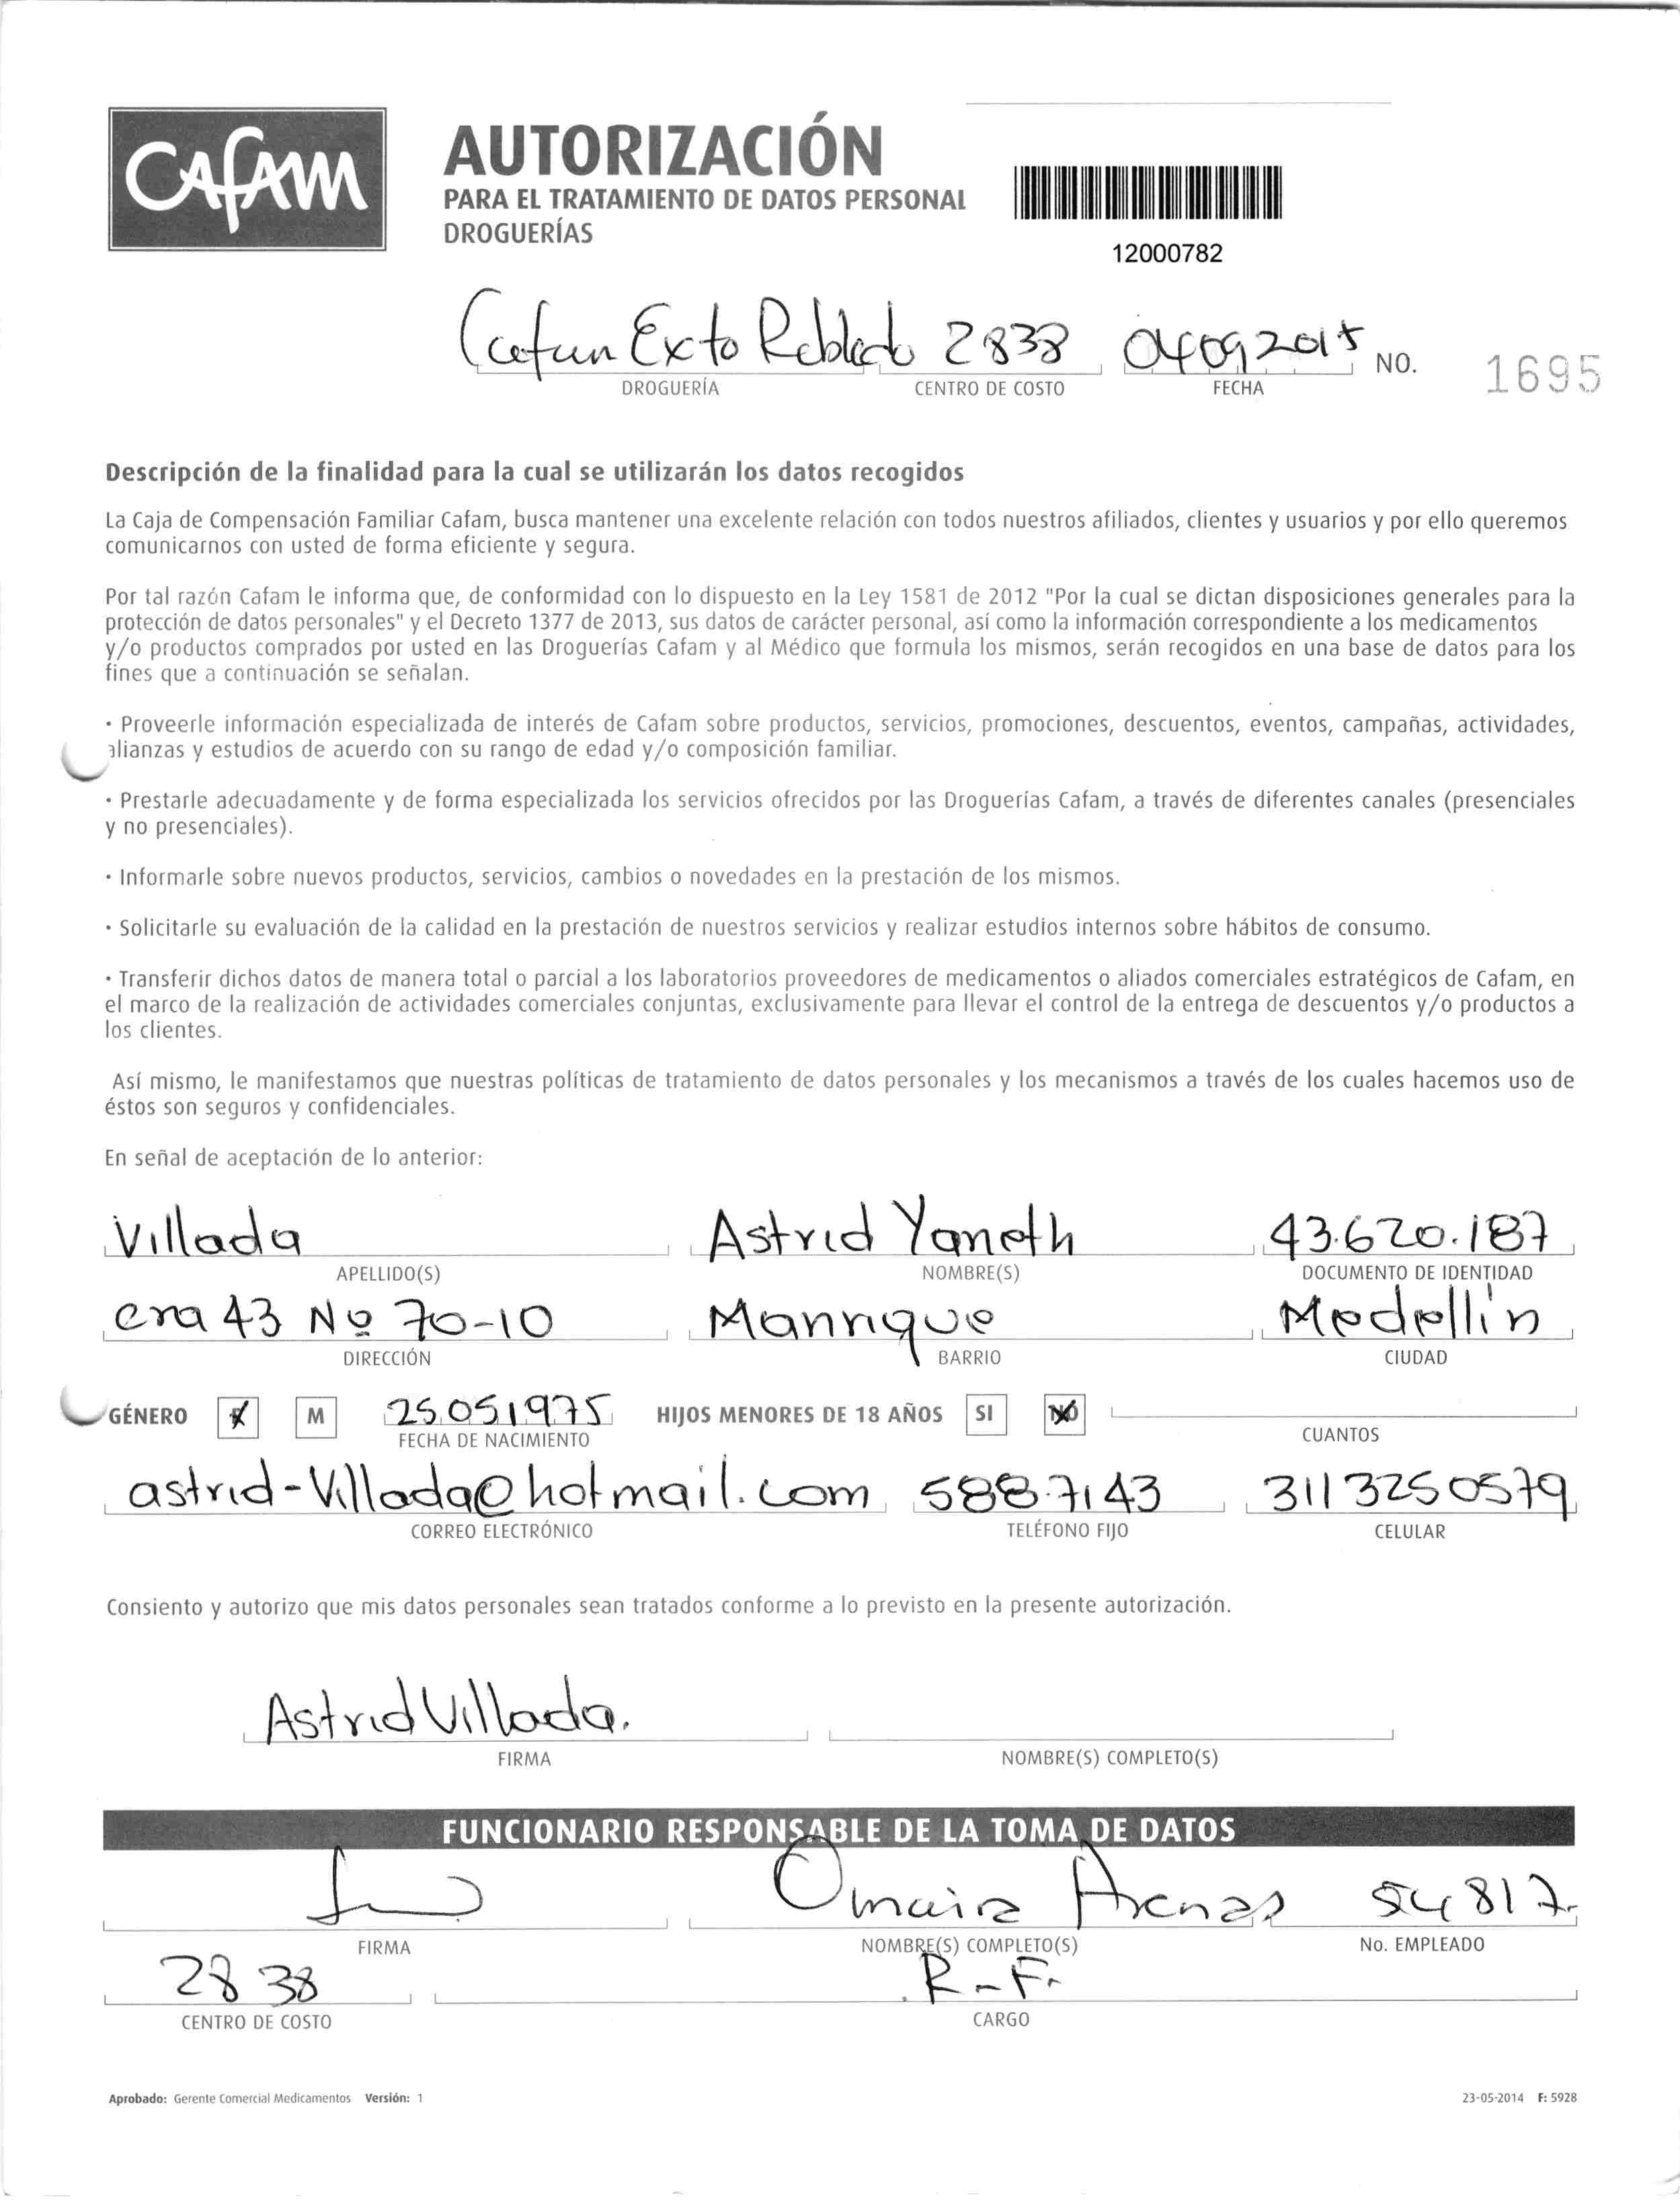 Cafam
AUTORIZACIÓN
PARA EL TRATAMIENTO DE DATOS PERSONAL
DROGUERÍAS
12000782
Exto Robledo 2838 04092015 NO. 1695
DROGUERÍA CENTRO DE COSTO FECHA
Descripción de la finalidad para la cual se utilizarán los datos recogidos
La Caja de Compensación Familiar Cafam, busca mantener una excelente relación con todos nuestros afiliados, clientes y usuarios y por ello queremos
comunicarnos con usted de forma eficiente y segura.
Por tal razón Cafam le informa que, de conformidad con lo dispuesto en la Ley 1581 de 2012 "Por la cual se dictan disposiciones generales para la
protección de datos personales" y el Decreto 1377 de 2013, sus datos de carácter personal, así como la información correspondiente a los medicamentos
y/o productos comprados por usted en las Droguerías Cafam y al Médico que formula los mismos, serán recogidos en una base de datos para los
fines que a continuación se señalan.
· Proveerle información especializada de interés de Cafam sobre productos, servicios, promociones, descuentos, eventos, campañas, actividades,
alianzas y estudios de acuerdo con su rango de edad y/o composición familiar.
· Prestarle adecuadamente y de forma especializada los servicios ofrecidos por las Droguerías Cafam, a través de diferentes canales (presenciales
y no presenciales).
· Informarle sobre nuevos productos, servicios, cambios o novedades en la prestación de los mismos.
· Solicitarle su evaluación de la calidad en la prestación de nuestros servicios y realizar estudios internos sobre hábitos de consumo.
· Transferir dichos datos de manera total o parcial a los laboratorios proveedores de medicamentos o aliados comerciales estratégicos de Cafam, en
el marco de la realización de actividades comerciales conjuntas, exclusivamente para llevar el control de la entrega de descuentos y/o productos a
los clientes.
Así mismo, le manifestamos que nuestras políticas de tratamiento de datos personales y los mecanismos a través de los cuales hacemos uso de
éstos son seguros y confidenciales.
En señal de aceptación de lo anterior:
Villada Astrid Yaneth 43.620.187
APELLIDO(S) NOMBRE(S) DOCUMENTO DE IDENTIDAD
cra 43 Nº 70-10 Manrique Medellín
DIRECCIÓN BARRIO CIUDAD
GÉNERO F M 25051975 HIJOS MENORES DE 18 AÑOS SI NO
FECHA DE NACIMIENTO CUANTOS
astrid-Villada@hotmail.com 5887143 3113250579
CORREO ELECTRÓNICO TELÉFONO FIJO CELULAR
Consiento y autorizo que mis datos personales sean tratados conforme a lo previsto en la presente autorización.
Astrid Villada.
FIRMA NOMBRE(S) COMPLETO(S)
FUNCIONARIO RESPONSABLE DE LA TOMA DE DATOS
Omaira Arenas 54817.
FIRMA NOMBRE(S) COMPLETO(S) No. EMPLEADO
2838 R-F.
CENTRO DE COSTO CARGO
Aprobado: Gerente Comercial Medicamentos Versión: 1 23-05-2014 F: 5928